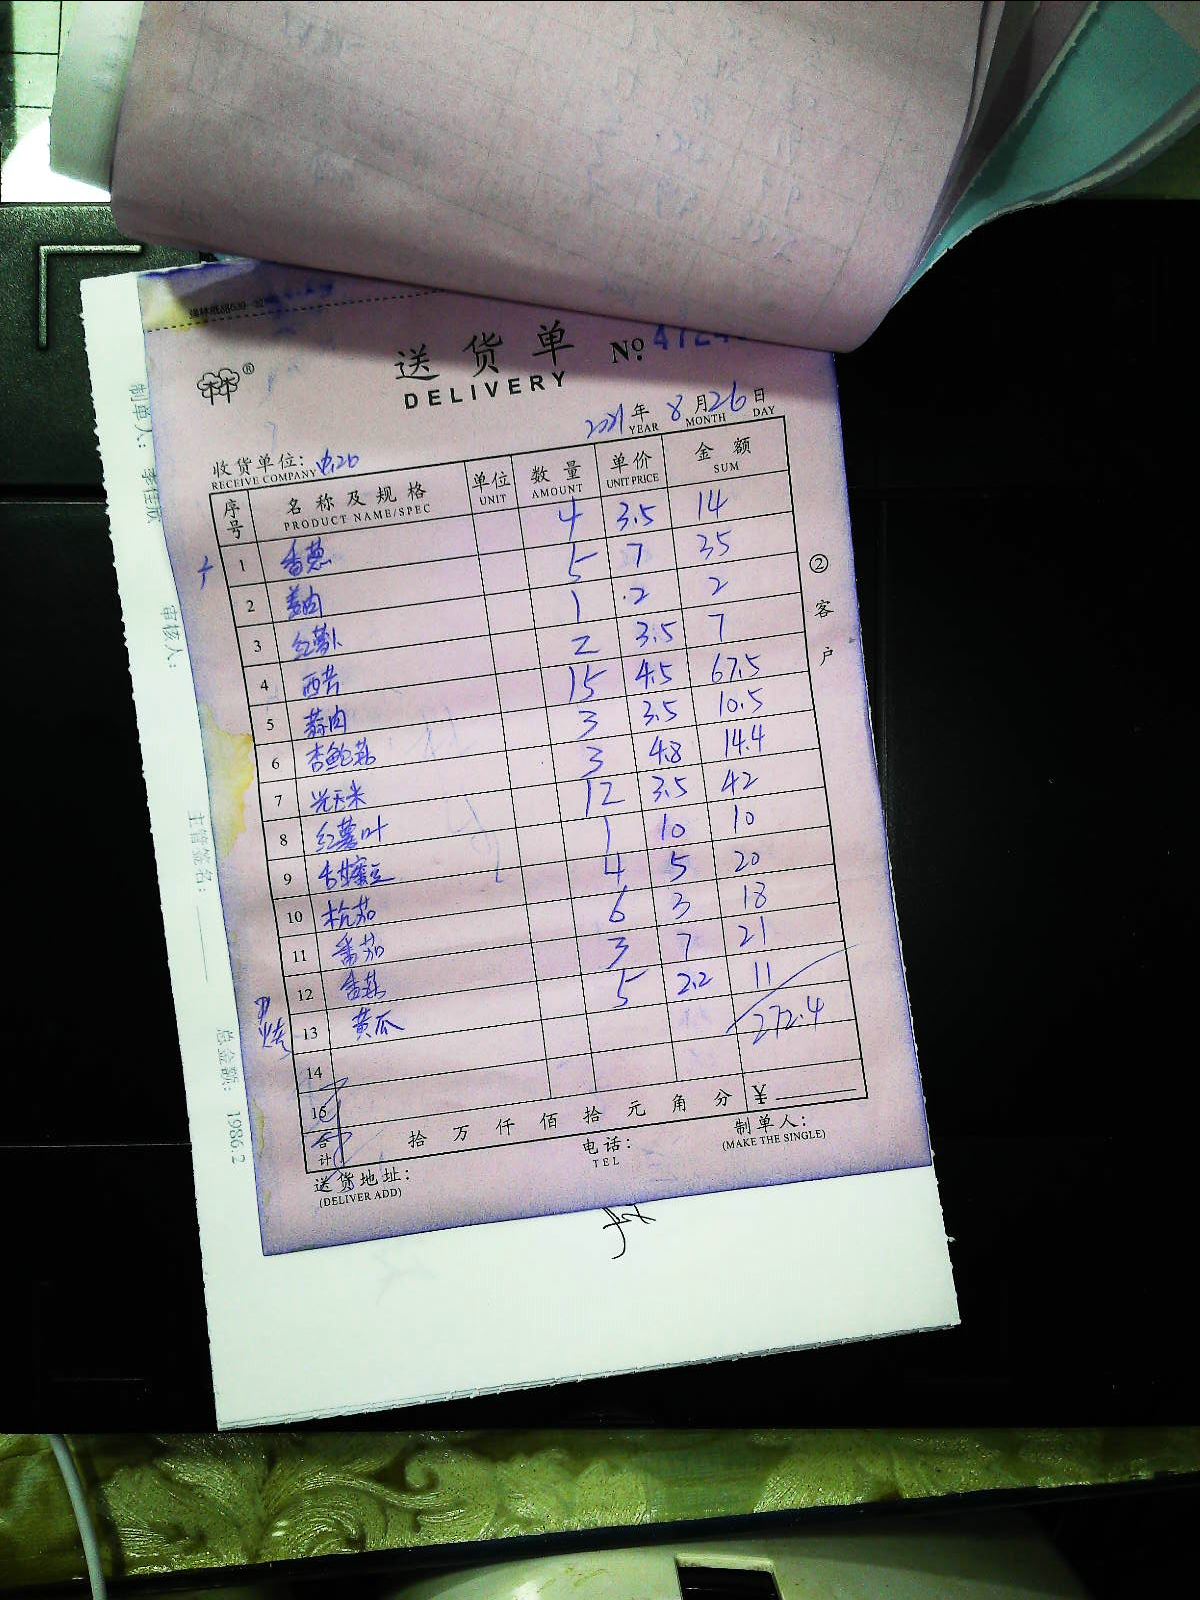 送货单 No. 4724
DELIVERY
2021年 8月26日
YEAR MONTH DAY
收货单位:
RECEIVE COMPANY
序号 名称及规格 单位 数量 单价 金额
PRODUCT NAME/SPEC UNIT AMOUNT UNIT PRICE SUM
1 香葱 4 3.5 14
2 姜肉 5 7 35
3 红萝卜 1 .2 2
4 西芹 2 3.5 7
5 蒜肉 15 4.5 67.5
6 杏鲍菇 3 3.5 10.5
7 光玉米 3 4.8 14.4
8 红薯叶 12 3.5 42
9 甜蜜豆 1 10 10
10 杭茄 4 5 20
11 番茄 6 3 18
12 香菇 3 7 21
13 黄瓜 5 2.2 11
14 272.4
15
合计 拾 万 仟 佰 拾 元 角 分 ¥
送货地址: 电话: 制单人:
(DELIVER ADD) TEL (MAKE THE SINGLE)
②客户
制单人:
审核人:
主管签名:
总金额: 1986.2